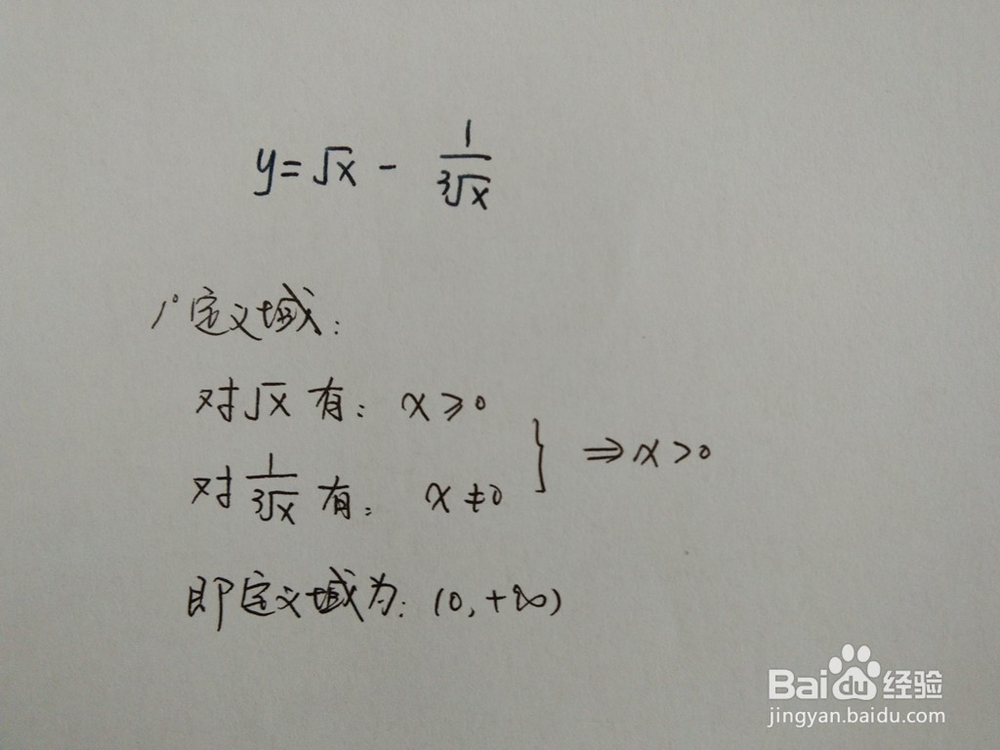 y=√x - 1/∛x
1° 定义域:
对√x 有: x≥0
对 1/∛x 有: x≠0
} ⇒ x>0
即定义域为: (0,+∞)
Baidu经验
jingyan.baidu.com